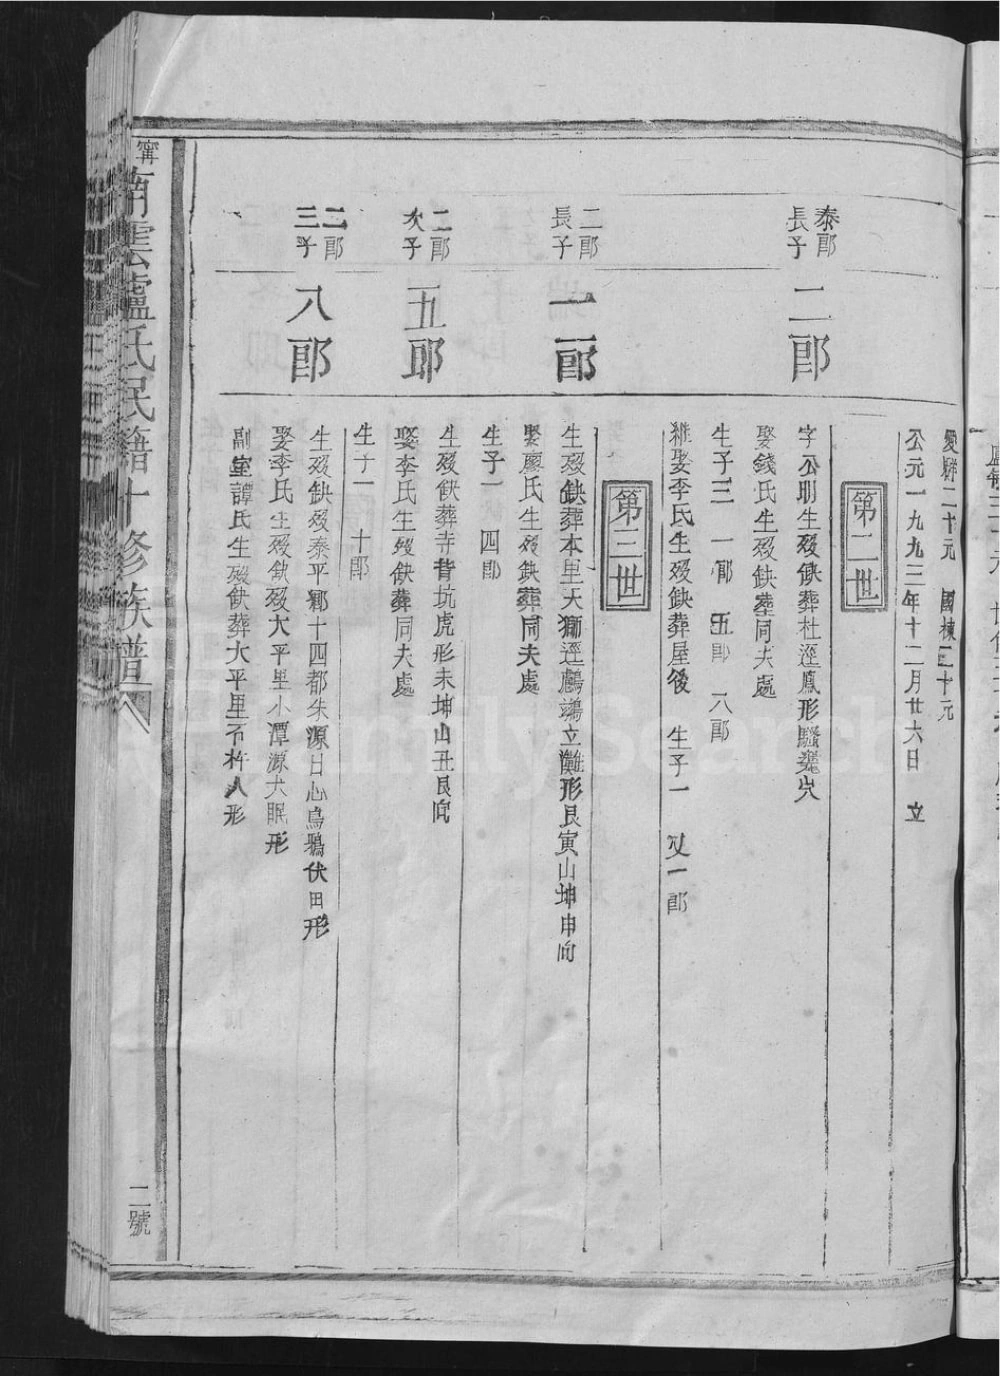 愛縣二十元 國棟三十元
公元一九九三年十二月廿六日 立
第二世
泰郎長子
二郎
字公明生歿缺葬杜逕鳳形騷
穴
娶錢氏生歿缺塟同夫處
生子三 一郎 五郎 八郎
継娶李氏生歿缺葬屋後 生子一 又一郎
第三世
二郎長子
一郎
生歿缺葬本里天獅逕鸕鶿立灘形艮寅山坤申向
娶廖氏生歿缺葬同夫處
生子一 四郎
二郎次子
五郎
生歿缺葬寺背坑虎形未坤山丑艮向
娶李氏生歿缺葬同夫處
生子一 十郎
二郎三子
八郎
生歿缺歿泰平鄉十四都朱源日心烏鴉伏田形
娶李氏生歿缺歿太平里小潭源犬眠形
副室譚氏生歿缺葬太平里石杵人形
甯南雲盧氏民籍十修族譜
二號
FamilySearch